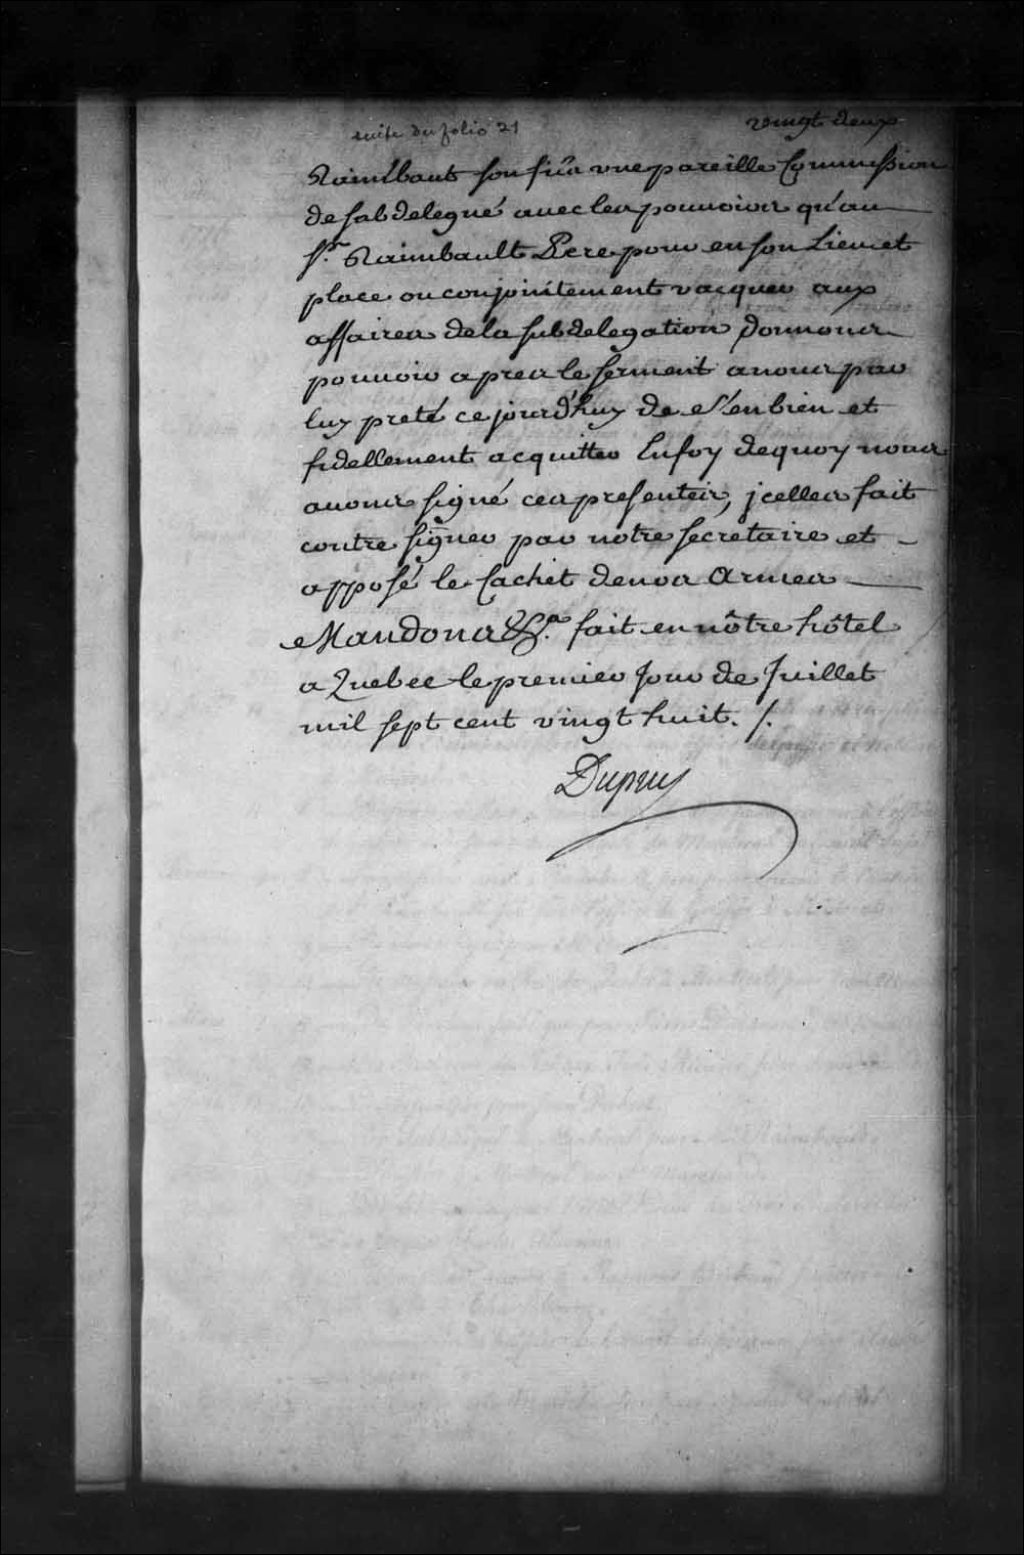 suite du folio 21
vingt deux
Raimbault son fils une pareille Commission
de sabdelegué avec les pouvoirs qu'au
Sr. Raimbault Pere pour en son Lieu et
place ou conjointement vacquer aux
affaires de la subdelegation Donnons
pouvoir apres le serment avons par
luy preté ce jourd'huy de s'en bien et
fidellement acquitter En foy de quoy nous
avons signé ces presenteis, jcelles fait
contre signer par notre secretaire et
apposé le Cachet de nos Armes
Mandons &a. fait en nôtre hôtel
a Quebec le premier Jour de Juillet
mil sept cent vingt huit. /.
Dupuy